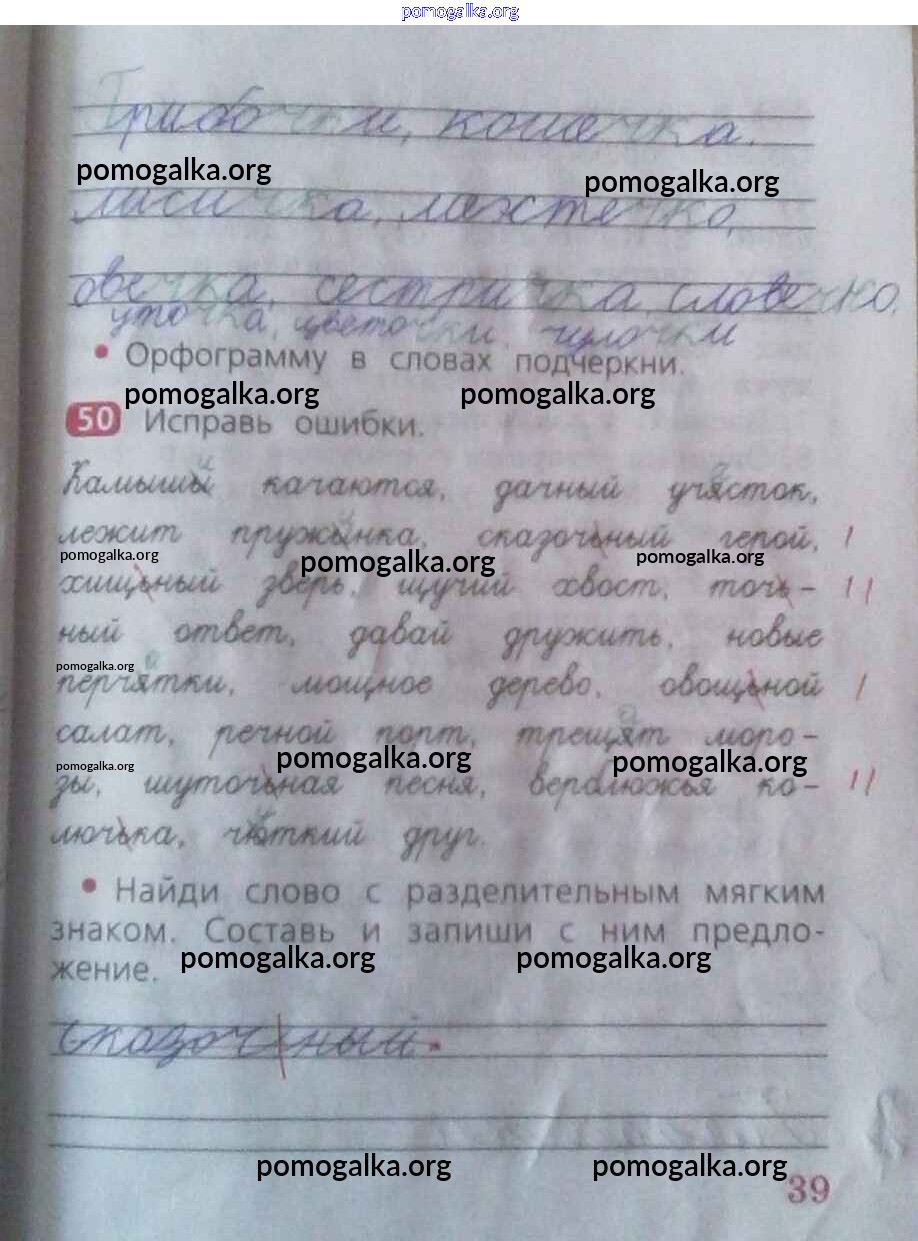 pomogalka.org
Грибочки, кошечка.
pomogalka.org pomogalka.org
лисичка, местечко,
овечка, сестричка, словечко,
уточка, цветочки, чулочки
• Орфограмму в словах подчеркни.
pomogalka.org pomogalka.org
50 Исправь ошибки.
Камышы качаются, дачный учясток,
лежит пружынка, сказочьный герой,
pomogalka.org pomogalka.org pomogalka.org
хищьный зверь, щучий хвост, точь-
ный ответ, давай дружить, новые
pomogalka.org
перчятки, мощное дерево, овощьной
салат, речной порт, трещят моро-
pomogalka.org pomogalka.org pomogalka.org
зы, шуточьная песня, верблюжья ко-
лючька, чёткий друг.
• Найди слово с разделительным мягким
знаком. Составь и запиши с ним предло-
pomogalka.org pomogalka.org
жение.
сказочный.
pomogalka.org pomogalka.org
39